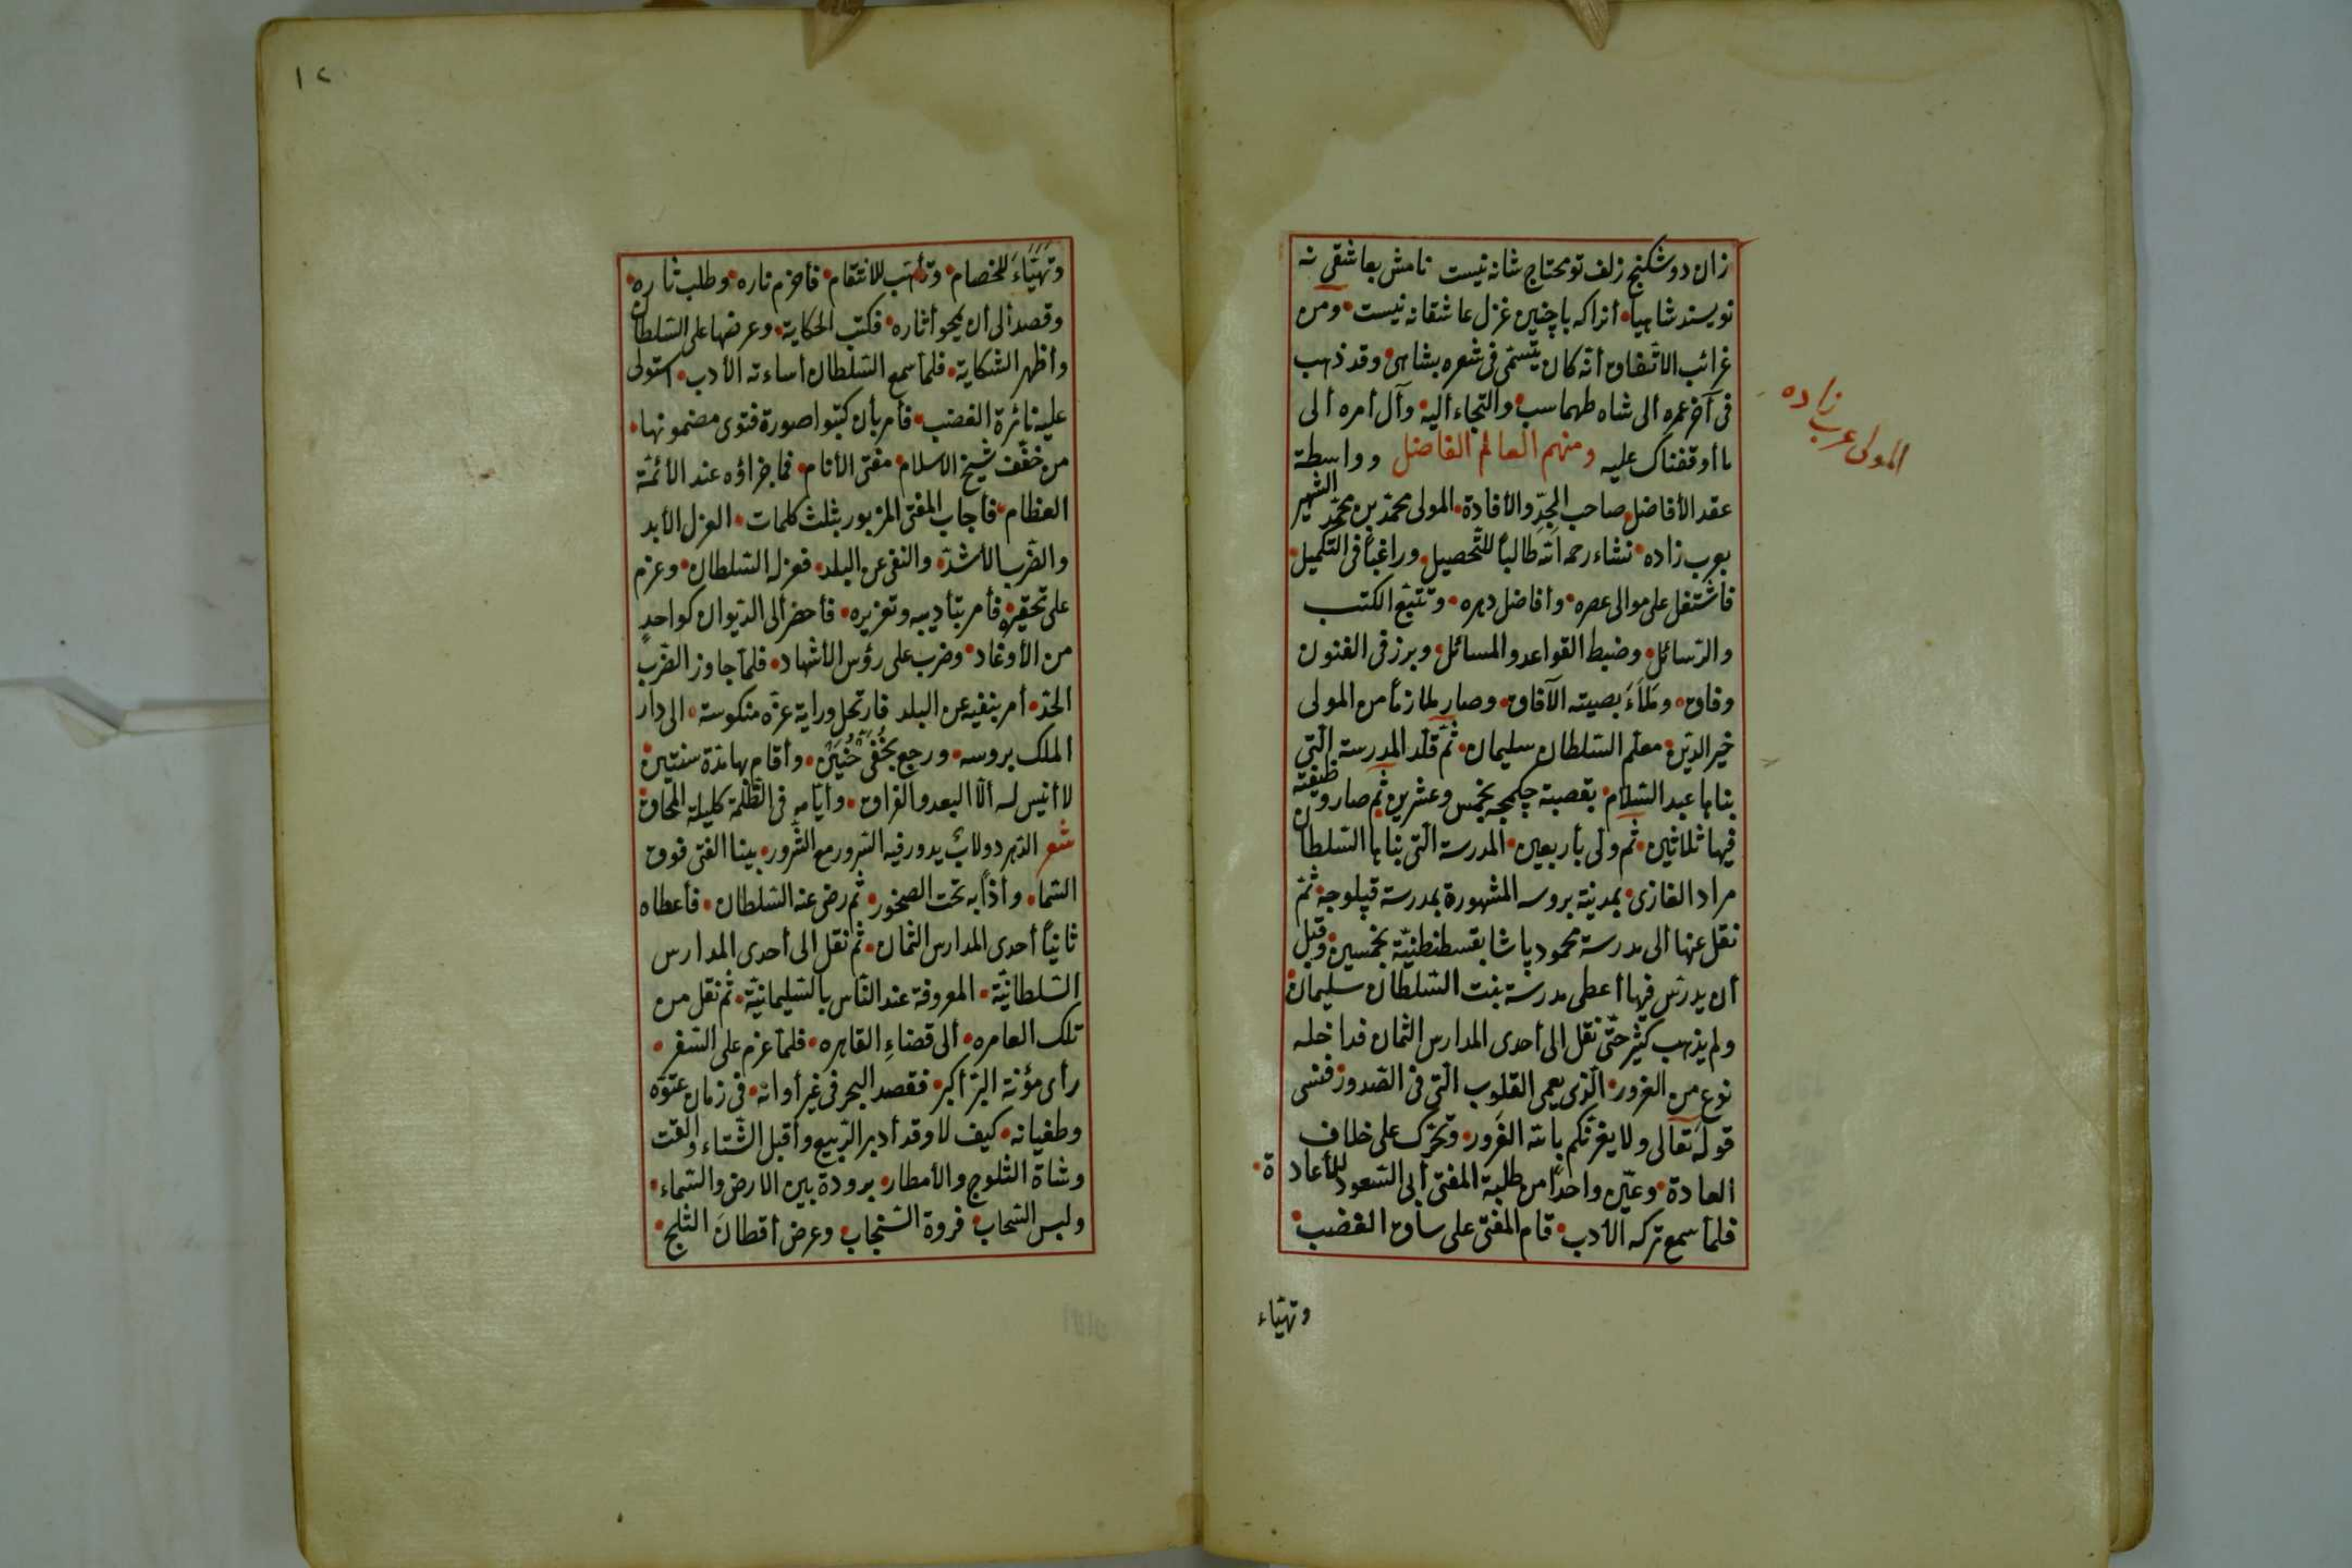 زان دو شكنج زلف تو محتاج شانه نيست نامش بعاشقى نه
نويسند شاهيا، آنراكه با چنين غزل عاشقانه نيست، ومن
غرائب الاتفاق أنّه كان يتسمّى فى شعره بشاهى، وقد ذهب
فى آخر عمره الى شاه طهماسب، والتجاء اليه، وآل أمره الى
ما أوقفناك عليه ومنهم العالم الفاضل وواسطة
عقد الأفاضل، صاحب الجدّ والأفادة، المولى محمّد بن محمّد الشهير
بعرب زاده، نشاء رحمه اللّه طالباً للتّحصيل، وراغباً فى التّكميل،
فاشتغل على موالى عصره، وأفاضل دهره، وتتبّع الكتب
والرّسائل، وضبط القواعد والمسائل، وبرز فى الفنون
وفاق، وملاءَ بصيته الآفاق، وصار ملازماً من المولى
خير الدّين، معلّم السّلطان سليمان، ثمّ قلّد المدرسة الّتى
بناها عبد السّلام، بقصبة چكمجه بخمس وعشرين، ثم صار وظيفته
فيها ثلاثين، ثم ولى بأربعين، المدرسة الّتى بناها السّلطان
مراد الغازى، بمدينة بروسه المشهورة بمدرسة قپلوجه، ثمّ
نقل عنها الى مدرسة محمود پاشا بقسطنطنيّة بخمسين، وقبل
أن يدرّس فيها أعطى مدرسة بنت السّلطان سليمان،
ولم يذهب كثير حتّى نقل الى أحدى المدارس الثمان فداخله
نوع من الغرور، الّذى يعمى القلوب الّتى فى الصّدور، فنسى
قوله تعالى ولا يغرّنّكم باللّه الغَرور، وتحرّك على خلاف
العادة، وعيّن واحداً من طلبة المفتى أبى السّعود للأعادة،
فلمّا سمع تركه الأدب، قام المفتى على ساق الغضب،
وتهيّاء
المولى عرب زاده
١٢٠
وتهيّاءَ للخصام، وتأهّب للانتقام، فأضرم ناره، وطلب ثاره،
وقصد الى أن يمحو أثاره، فكتب الحكاية، وعرضها على السّلطان
وأظهر الشكاية، فلمّا سمع السّلطان أساءته الأدب، استولى
عليه نائرة الغضب، فأمر بأن كتبوا صورة فتوى مضمونها،
من خفّف شيخ الاسلام، مفتى الأنام، فما جزاؤه عند الأئمّة
العظام، فأجاب المفتى المزبور بثلث كلمات، العزل الأبد
والضّرب الأشدّ، والنفى عن البلد، فعزله السّلطان، وعزم
على تحقيره، فأمر بتأديبه وتعزيره، فأحضر الى الدّيوان كواحدٍ
من الأوغاد، وضرب على رؤس الأشهاد، فلمّا جاوز الضّرب
الحدّ، أمر بنفيه عن البلد فارتحل وراية عزّه منكوسة، الى دار
الملك بروسه، ورجع بخُفَّى حُنَين، وأقام بها مدّة سنتين،
لا أنيس له الّا البعد والفراق، وأيّامه فى الظّلمة كليلة المحاق،
شعر الدّهر دولابٌ يدور فيه السّرور مع الشّرور، بينا الفتى فوق
السّما، وأذاً به تحت الصخور، ثم رضى عنه السّلطان، فأعطاه
ثانياً أحدى المدارس الثمان، ثم نقل الى أحدى المدارس
السّلطانيّة، المعروفة عند النّاس بالسّليمانيّة، ثم نقل من
تلك العامره، الى قضاءِ القاهره، فلمّا عزم على السّفر،
رأى مؤنة البرّ أكبر، فقصد البحر فى غير أوانه، فى زمان عتوّه
وطغيانه، كيف لا وقد أدبر الرّبيع وأقبل الشّتاء، والقت
وشاة الثلوج والأمطار، برودة بين الارض والسّماء،
ولبس السّحاب، فروة السّنجاب، وعرض أقطانَ الثلج،